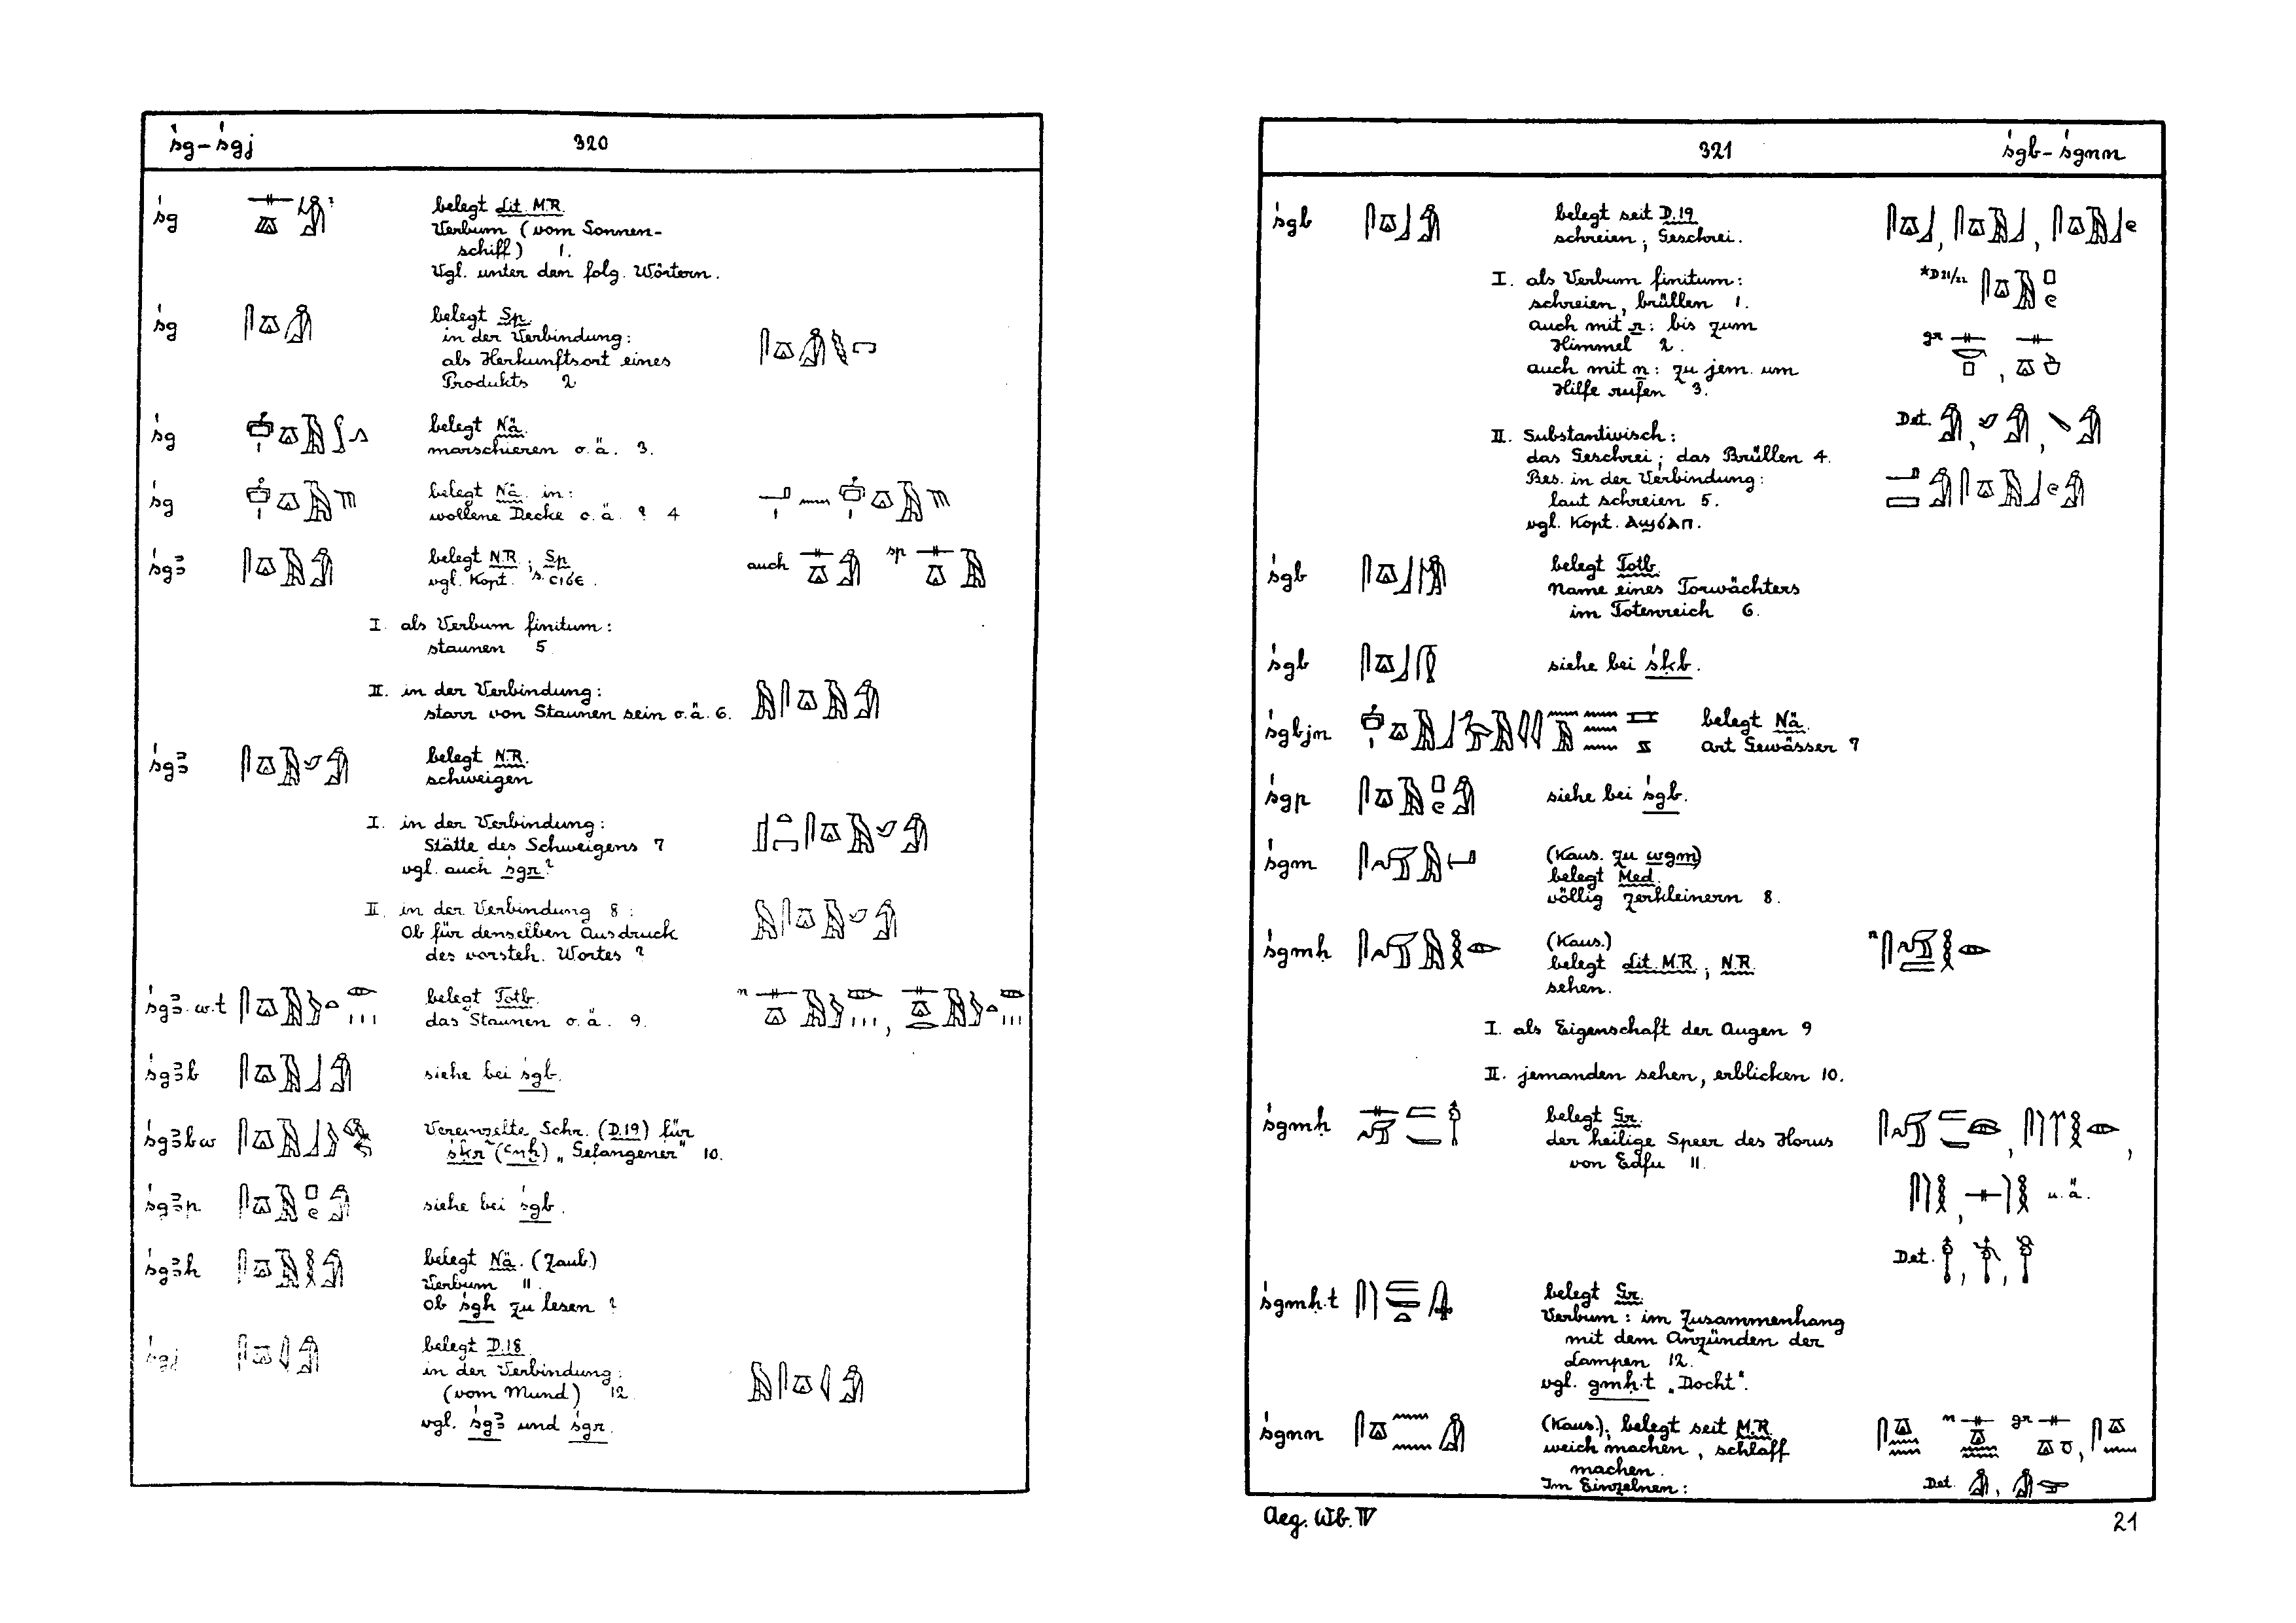 śg–śgj 320
śg
belegt Lit. M.R.
Verbum (vom Sonnen-
schiff) 1.
Vgl. unter den folg. Wörtern.
śg
belegt Sp.
in der Verbindung:
als Herkunftsort eines
Produkts 2
śg
belegt Nä.
marschieren o.ä. 3.
śg
belegt Nä. in:
wollene Decke o.ä. ? 4
śgꜣ
belegt N.R.; Sp. auch sp
vgl. Kopt. S. ϭⲓϭⲉ.
I. als Verbum finitum:
staunen 5
II. in der Verbindung:
starr von Staunen sein o.ä. 6.
śgꜣ
belegt N.R.
schweigen
I. in der Verbindung:
Stätte des Schweigens 7
vgl. auch śgr?
II. in der Verbindung 8:
Ob für denselben Ausdruck
des vorsteh. Wortes ?
śgꜣ.w.t
belegt Totb. n
das Staunen o.ä. 9.
śgꜣb
siehe bei śgb.
śgꜣbw
Vereinzelte Schr. (D.19) für
śḳr (ꜥnḫ) „Gefangener" 10.
śgꜣp
siehe bei śgb.
śgꜣḥ
belegt Nä. (Zaub.)
Verbum 11.
Ob śgḥ zu lesen ?
śgj
belegt D.18
in der Verbindung:
(vom Mund) 12
vgl. śgꜣ und śgr.
321 śgb–śgnn
śgb
belegt seit D.19
schreien; Geschrei.
I. als Verbum finitum: *D21/22
schreien, brüllen 1.
auch mit r: bis zum
Himmel 2. gr
auch mit n: zu jem. um
Hilfe rufen 3.
II. Substantivisch: Det.
das Geschrei; das Brüllen 4.
Bes. in der Verbindung:
laut schreien 5.
vgl. Kopt. ⲁϣϭⲁⲡ.
śgb
belegt Totb.
Name eines Torwächters
im Totenreich 6.
śgb
siehe bei śḳb.
śgbjn
belegt Nä.
Art Gewässer 7
śgp
siehe bei śgb.
śgm
(Kaus. zu wgm)
belegt Med.
völlig zerkleinern 8.
śgmḥ
(Kaus.) n
belegt Lit. M.R.; N.R.
sehen.
I. als Eigenschaft der Augen 9
II. jemanden sehen, erblicken 10.
śgmḥ
belegt Gr.
der heilige Speer des Horus
von Edfu 11.
u.ä.
Det.
śgmḥ.t
belegt Gr.
Verbum: im Zusammenhang
mit dem Anzünden der
Lampen 12.
vgl. gmḥ.t „Docht".
śgnn
(Kaus.); belegt seit M.R. n gr
weich machen, schlaff
machen.
Im Einzelnen: Det.
Aeg. Wb. IV 21